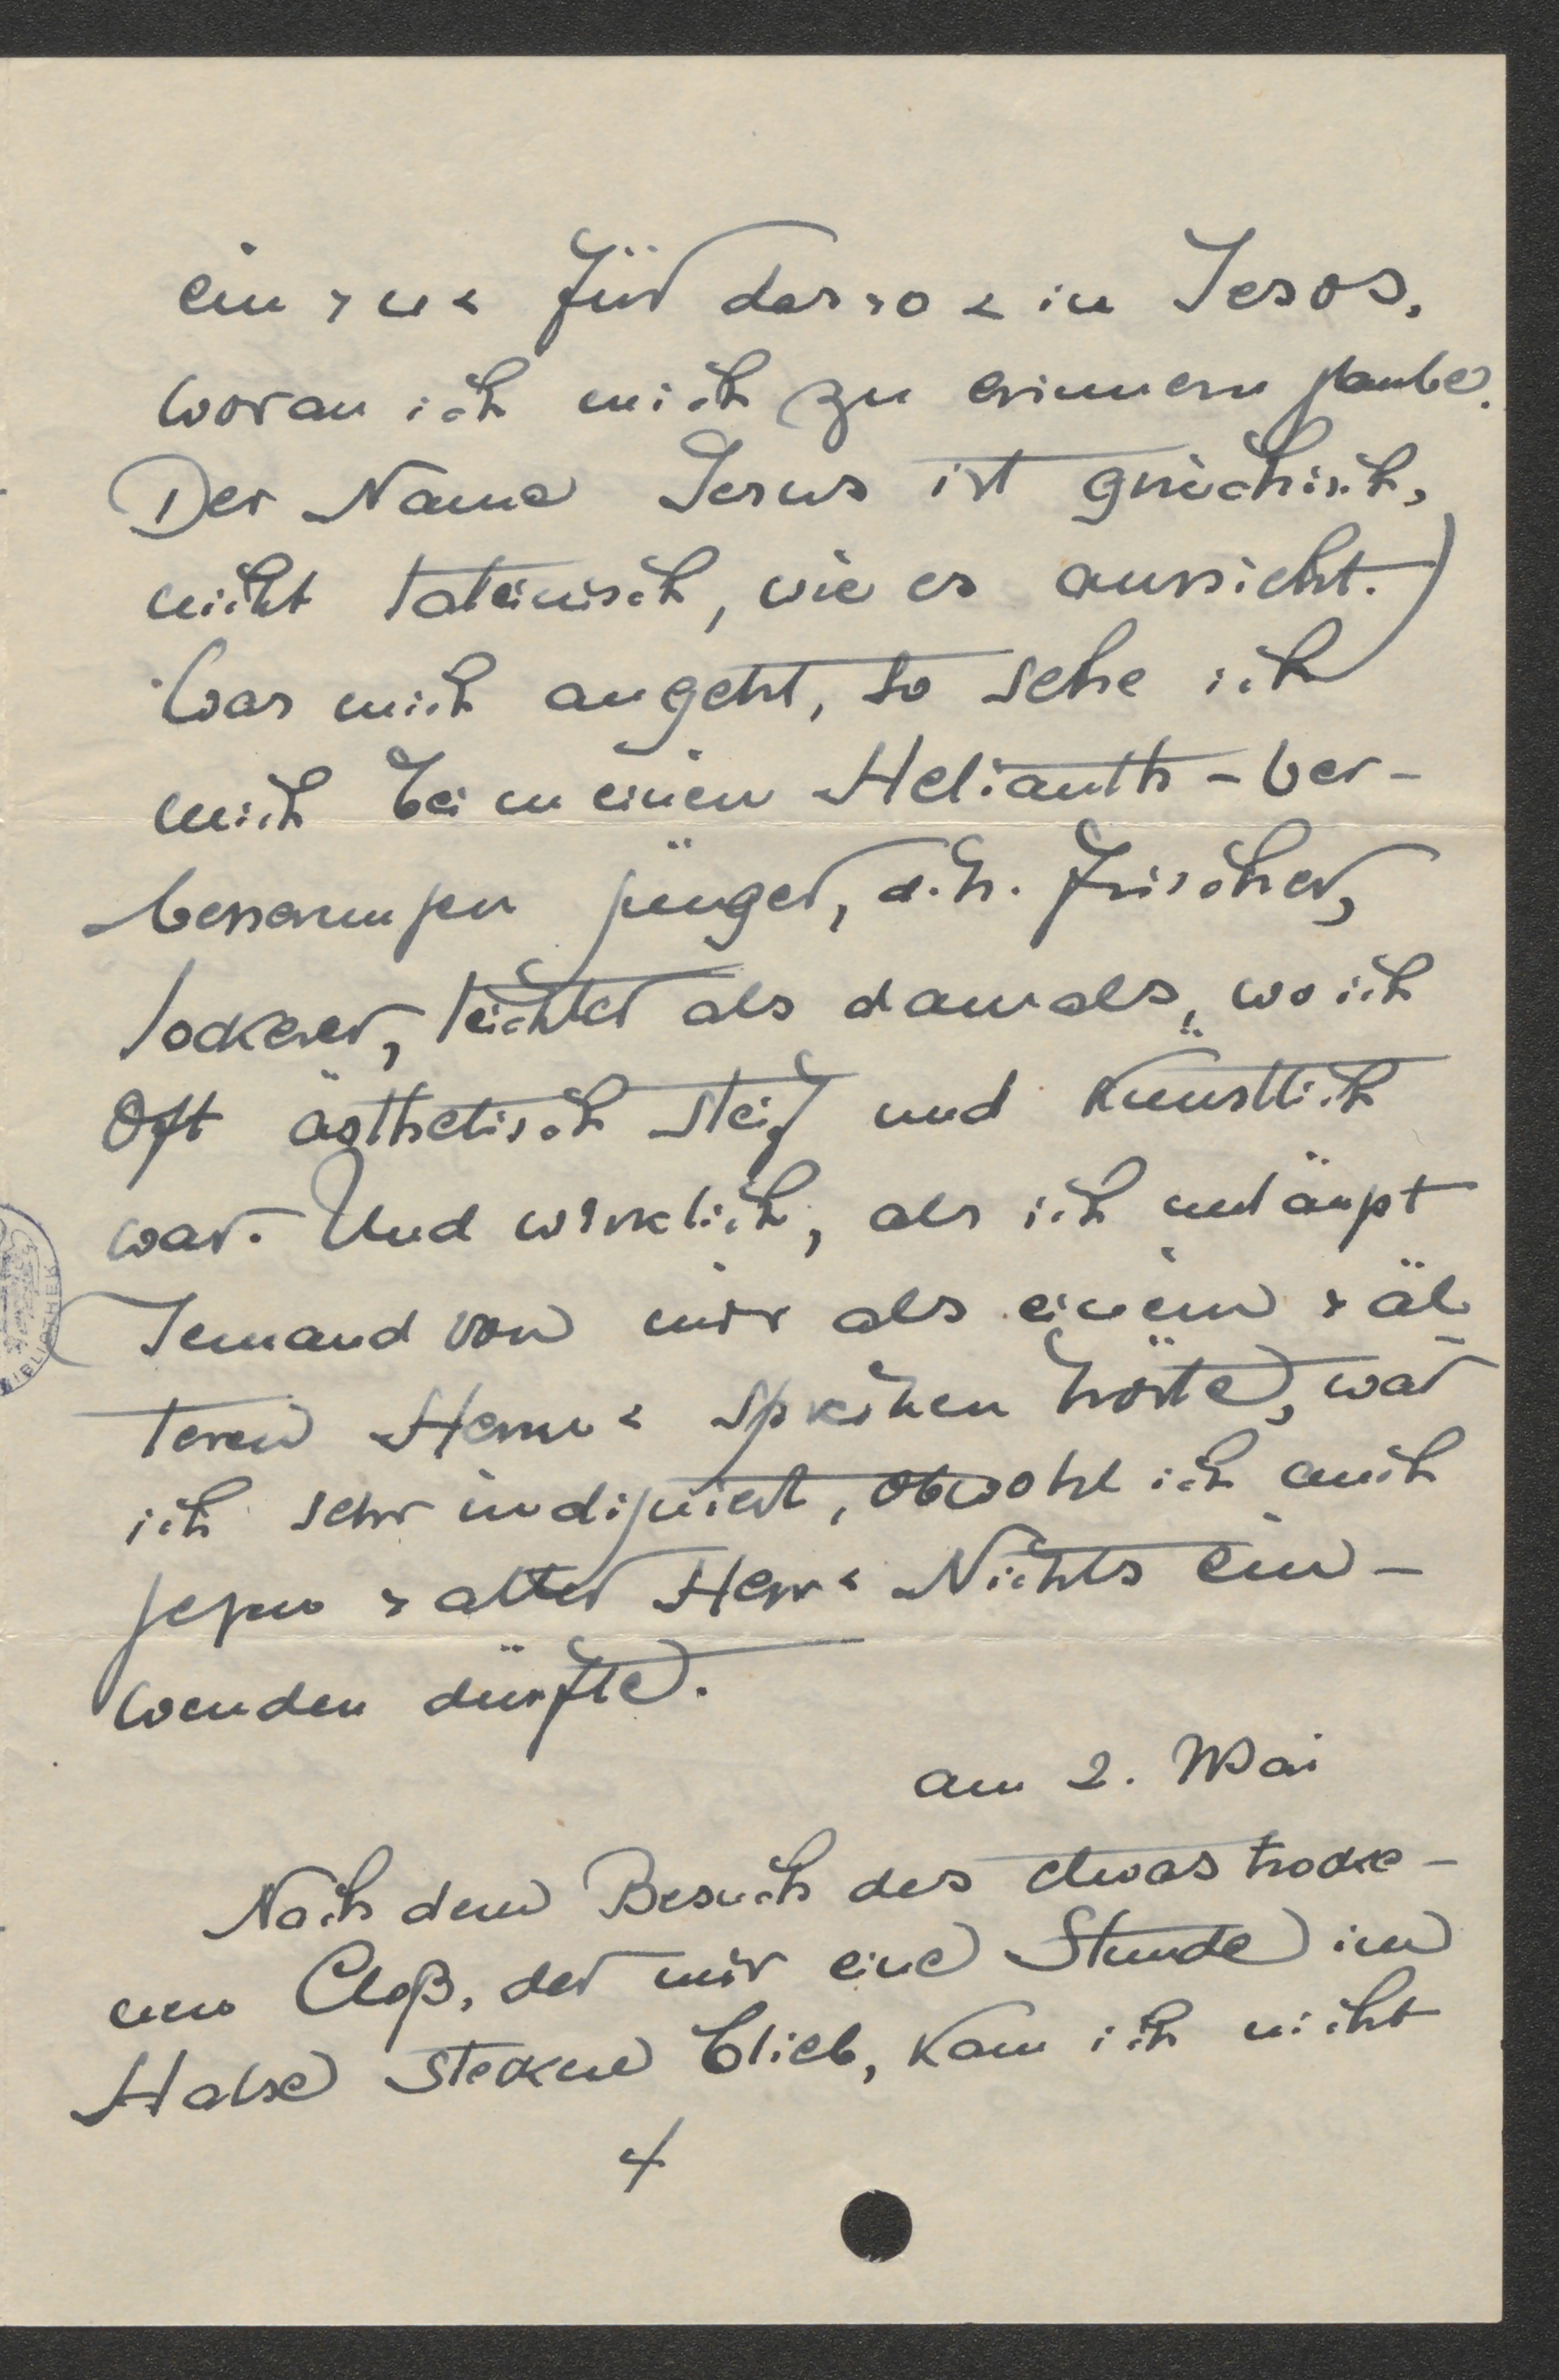 ein ›u‹ für das ›o‹ in Jesos,
woran ich mich zu erinnern glaube.
Der Name Jesus ist griechisch,
nicht lateinisch, wie es aussieht.)
Was mich angeht, so sehe ich
mich bei meinen Helianth-Ver-
besserungen jünger, d.h. frischer,
lockerer, leichter als damals, wo ich
oft ästhetisch steif und künstlich
war. Und wirklich, als ich unlängst
Jemand von mir als einem ›äl-
teren Herrn‹ sprechen hörte, war
ich sehr indigniert, obwohl ich auch
gegen ›alter Herr‹ Nichts ein-
wenden dürfte.
am 2. Mai
Nach dem Besuch des etwas trocke-
nen Cloß, der mir eine Stunde im
Halse stecken blieb, kam ich nicht
4